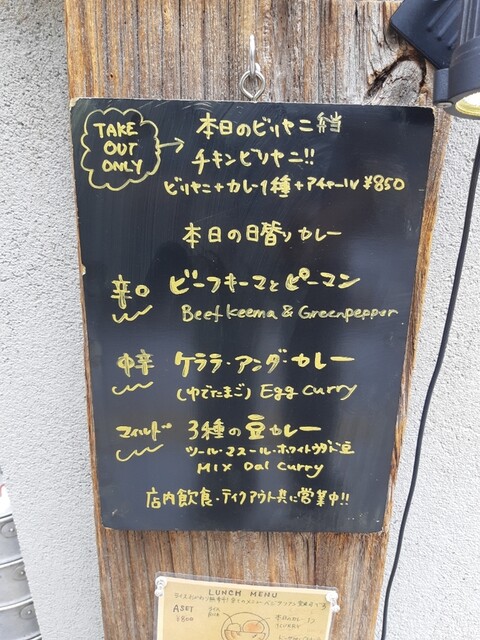 TAKE
OUT
ONLY
本日のビリヤニ弁当
チキンビリヤニ!!
ビリヤニ+カレー1種+アチャール ¥850
本日の日替りカレー
辛口 ビーフキーマとピーマン
Beef keema & Greenpepper
中辛 ケララ・アンダ・カレー
(ゆでたまご) Egg curry
マイルド 3種の豆カレー
ツール・マスール・ホワイトウラド豆
MIX Dal curry
店内飲食・テイクアウト共に営業中!!
LUNCH MENU
A SET
¥800